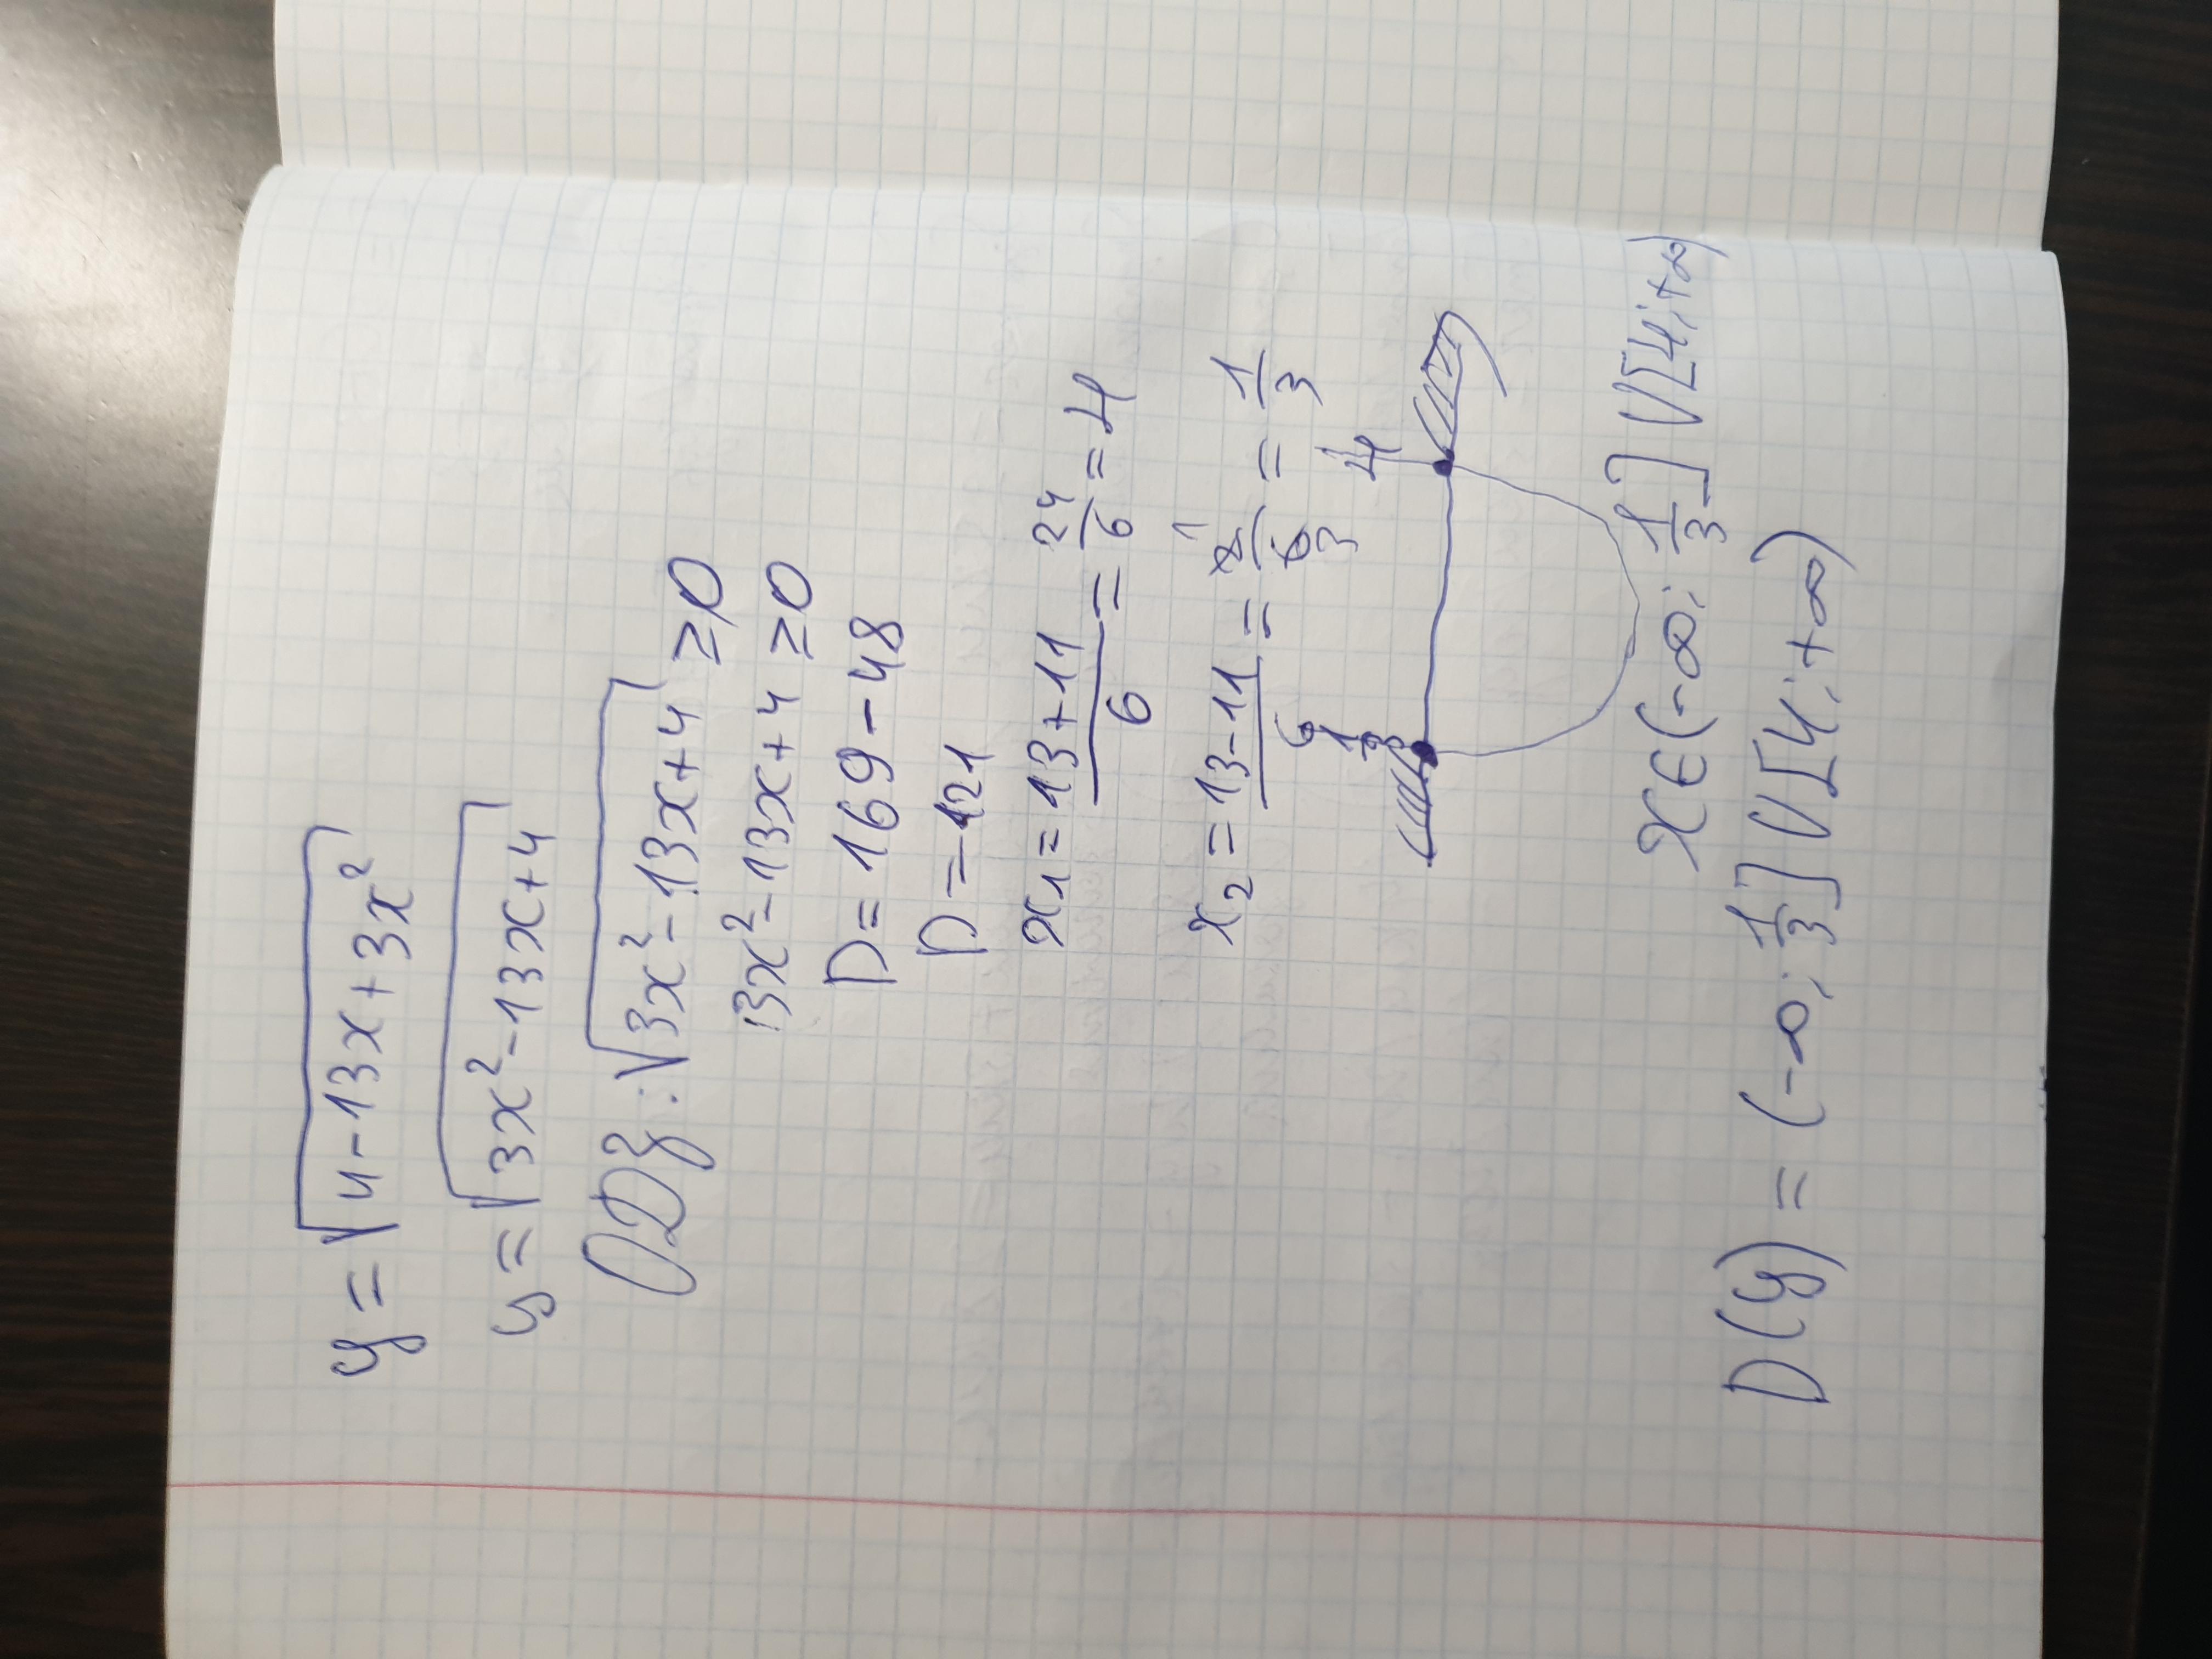 y = √(4-13x+3x²)
y = √(3x²-13x+4)
ОДЗ: √(3x²-13x+4) ≥ 0
3x²-13x+4 ≥ 0
D = 169 - 48
D = 121
x₁ = (13+11)/6 = 24/6 = 4
x₂ = (13-11)/6 = 2/6 = 1/3
1/3 4
x ∈ (-∞; 1/3] ∪ [4; +∞)
D(y) = (-∞; 1/3] ∪ [4; +∞)